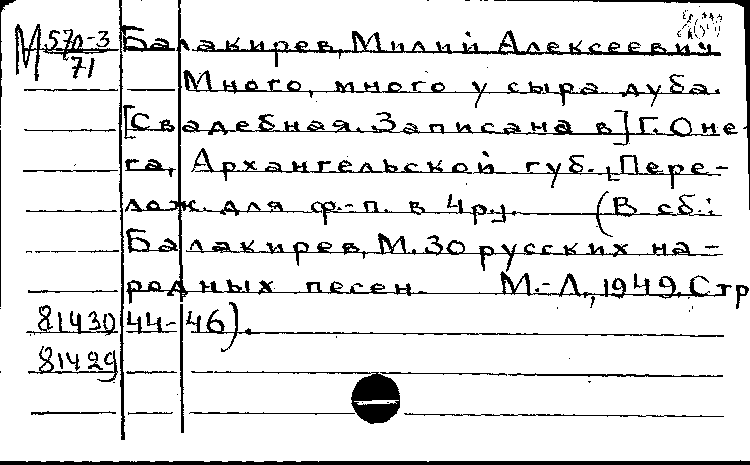 М 570-3 Балакирев, Милий Алексеевич
71
Много, много у сыра дуба.
[Свадебная. Записана в] Г. Оне-
га, Архангельской губ., [Пере-
лож. для ф.-п. в 4 р.]. (В сб.:
Балакирев, М. 30 русских на-
родных песен. М.-Л., 1949. Стр
81430 44-46).
81429